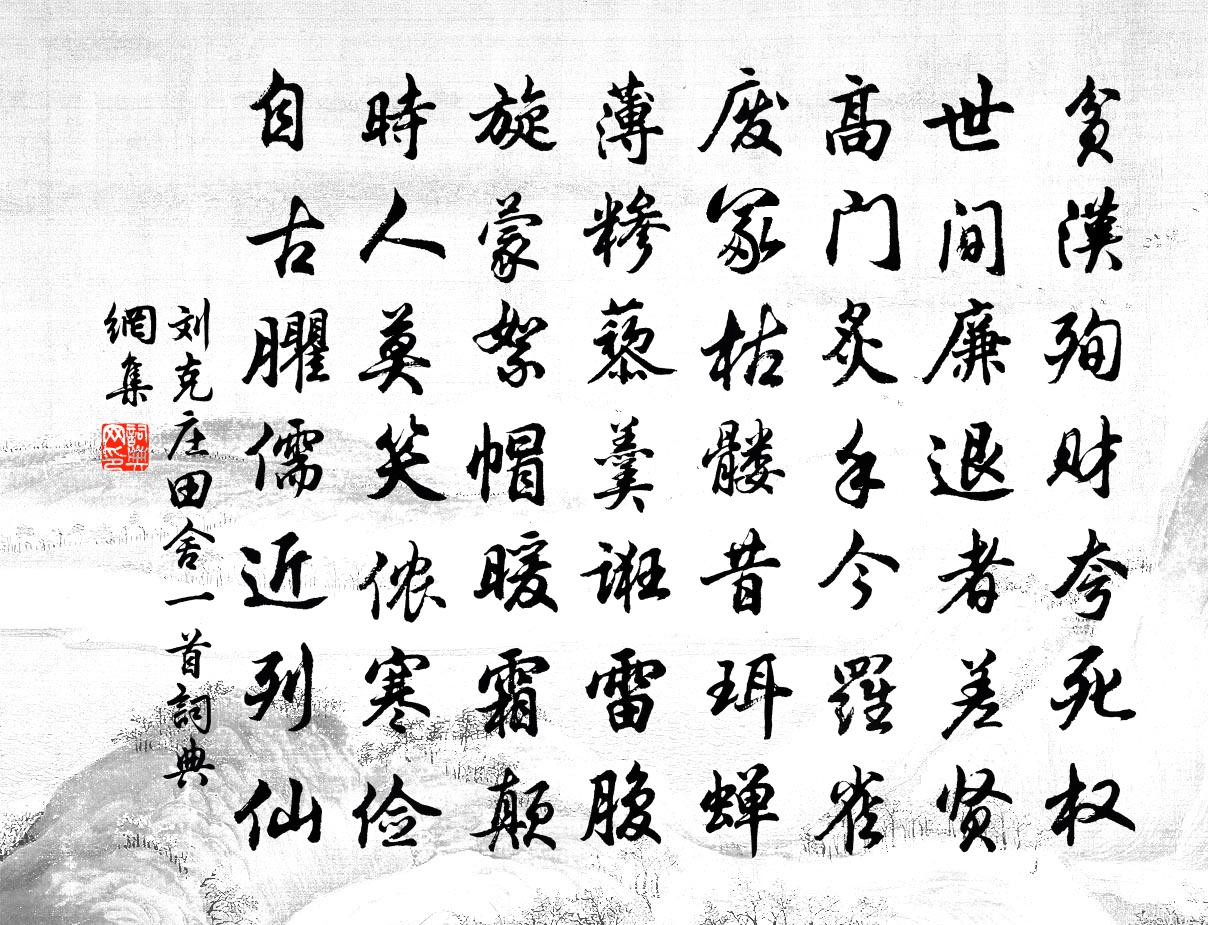 貧漢殉财夸死权
世间廉退者差贤
高门炙手今羅雀
废冢枯髏昔珥蝉
薄糁藜羹誑雷腹
旋蒙絮帽暖霜颠
時人莫笑侬寒俭
自古臞儒近列仙
刘克庄田舍一首詞典
網集